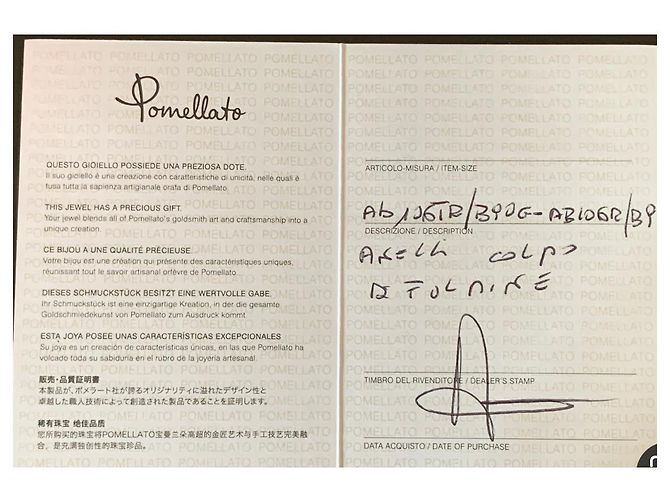 Pomellato
QUESTO GIOIELLO POSSIEDE UNA PREZIOSA DOTE.
Il suo gioiello è una creazione con caratteristiche di unicità, nelle quali è
fusa tutta la sapienza artigianale orafa di Pomellato.
THIS JEWEL HAS A PRECIOUS GIFT.
Your jewel blends all of Pomellato's goldsmith art and craftsmanship into a
unique creation.
CE BIJOU A UNE QUALITÉ PRÉCIEUSE.
Votre bijou est une création qui présente des caractéristiques uniques,
réunissant tout le savoir artisanal orfèvre de Pomellato.
DIESES SCHMUCKSTÜCK BESITZT EINE WERTVOLLE GABE.
Ihr Schmuckstück ist eine einzigartige Kreation, in der die gesamte
Goldschmiedekunst von Pomellato zum Ausdruck kommt.
ESTA JOYA POSEE UNAS CARACTERÍSTICAS EXCEPCIONALES
Su joya es un creación de características únicas, en las que Pomellato ha
volcado toda su sabiduría en el rubro de la joyería artesanal.
販売・品質証明書
本製品が、ポメラート社が誇るオリジナリティに溢れたデザイン性と
卓越した職人技術によって創造された製品であることを証明します。
稀有珠宝 绝佳品质
您所购买的珠宝将POMELLATO宝曼兰朵高超的金匠艺术与手工技艺完美融
合，是充满独创性的珠宝珍品。
ARTICOLO-MISURA / ITEM-SIZE
DESCRIZIONE / DESCRIPTION
ANELLI COLPO
DI FULMINE
TIMBRO DEL RIVENDITORE / DEALER'S STAMP
DATA ACQUISTO / DATE OF PURCHASE